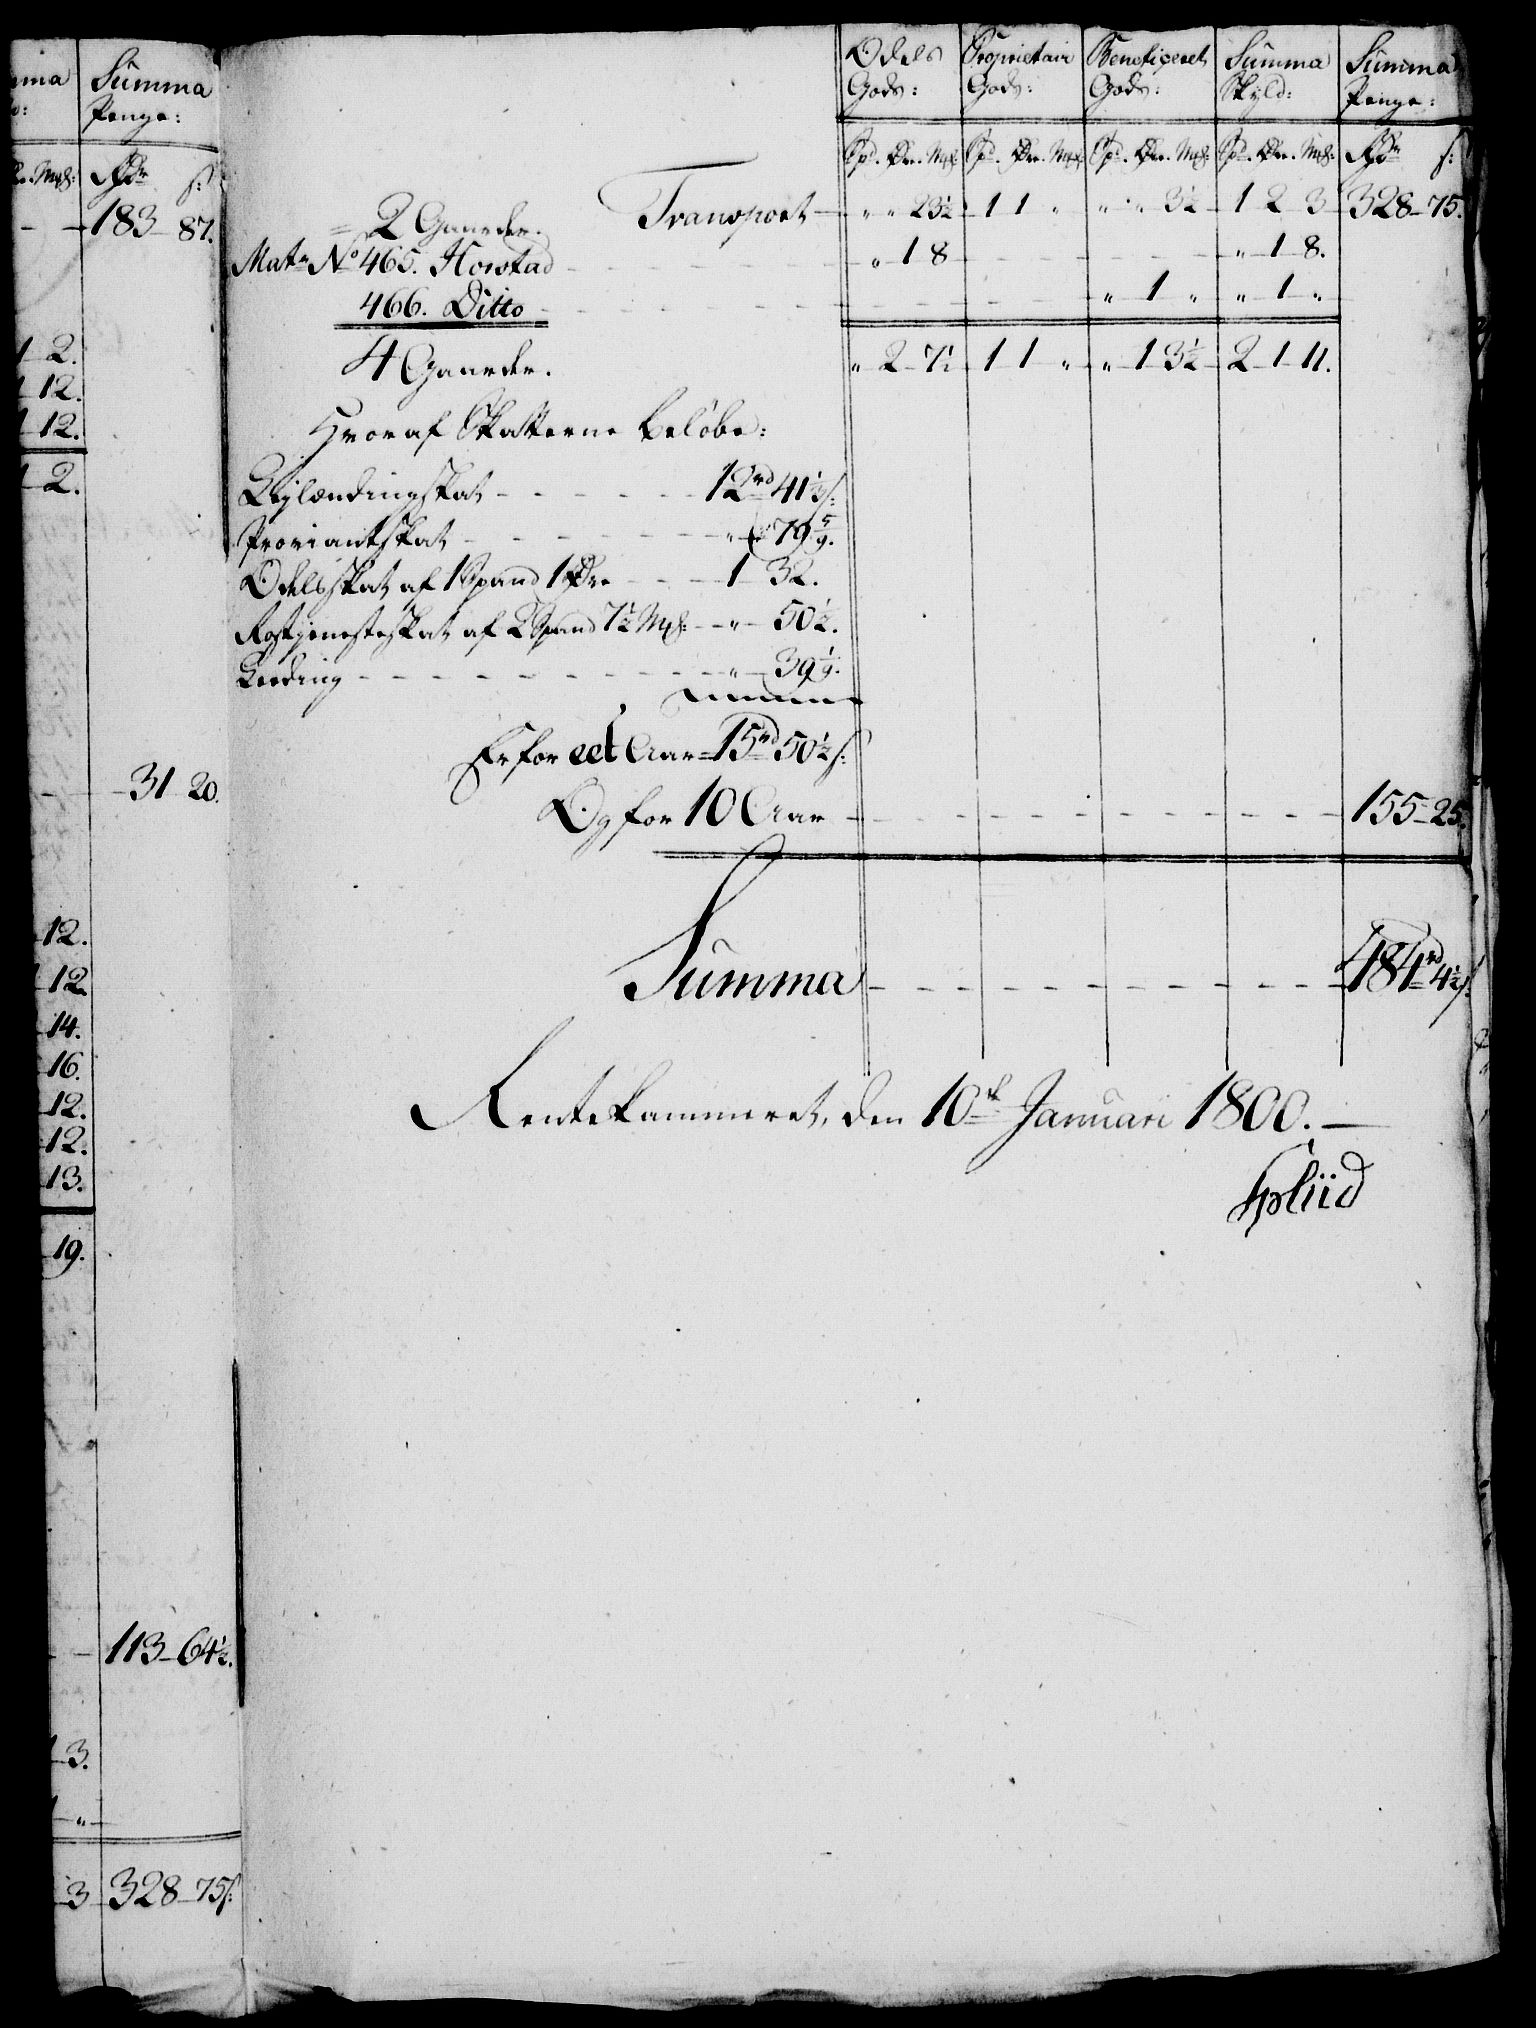 Summa
Penge:
Rdr s:
183 87.
2.
12.
12.
2.
31 20.
12.
12
14.
16.
12.
12.
13.
19.
113 64½.
3.
3 328 75s:
Odels Gods: Proprietair Gods: Beneficeret Gods: Summa Skyld: Summa Penge:
Spd. Øre. Mrk. Spd. Øre. Mrk. Spd. Øre. Mrk. Spd. Øre. Mrk. Rdr s:
2 Gaarder. Transport " " 23½ 1 1 " " " 3½ 1 2 3 328 75.
Matr No 465. Howstad " 1 8 " 1 8.
466. Ditto " 1 " " 1 "
4 Gaarder. " 2 7½ 1 1 " " 1 3½ 2 1 11.
Hvoraf Skatterne beløbe:
Leylændingskat 12rd 41⅓s:
Proviantskat " 79 5/9.
Odelsskat af 1 Spand 1 Øre 1 32.
Rostjenesteskat af 2 Spand 7½ Mrk: " 50½.
Leeding " 39 1/9.
Er for eet Aar 15rd 50½s:
Og for 10 Aar 155 25.
Summa 484rd 4½s:
Rentekammeret, den 10de Januari 1800.
Spliid